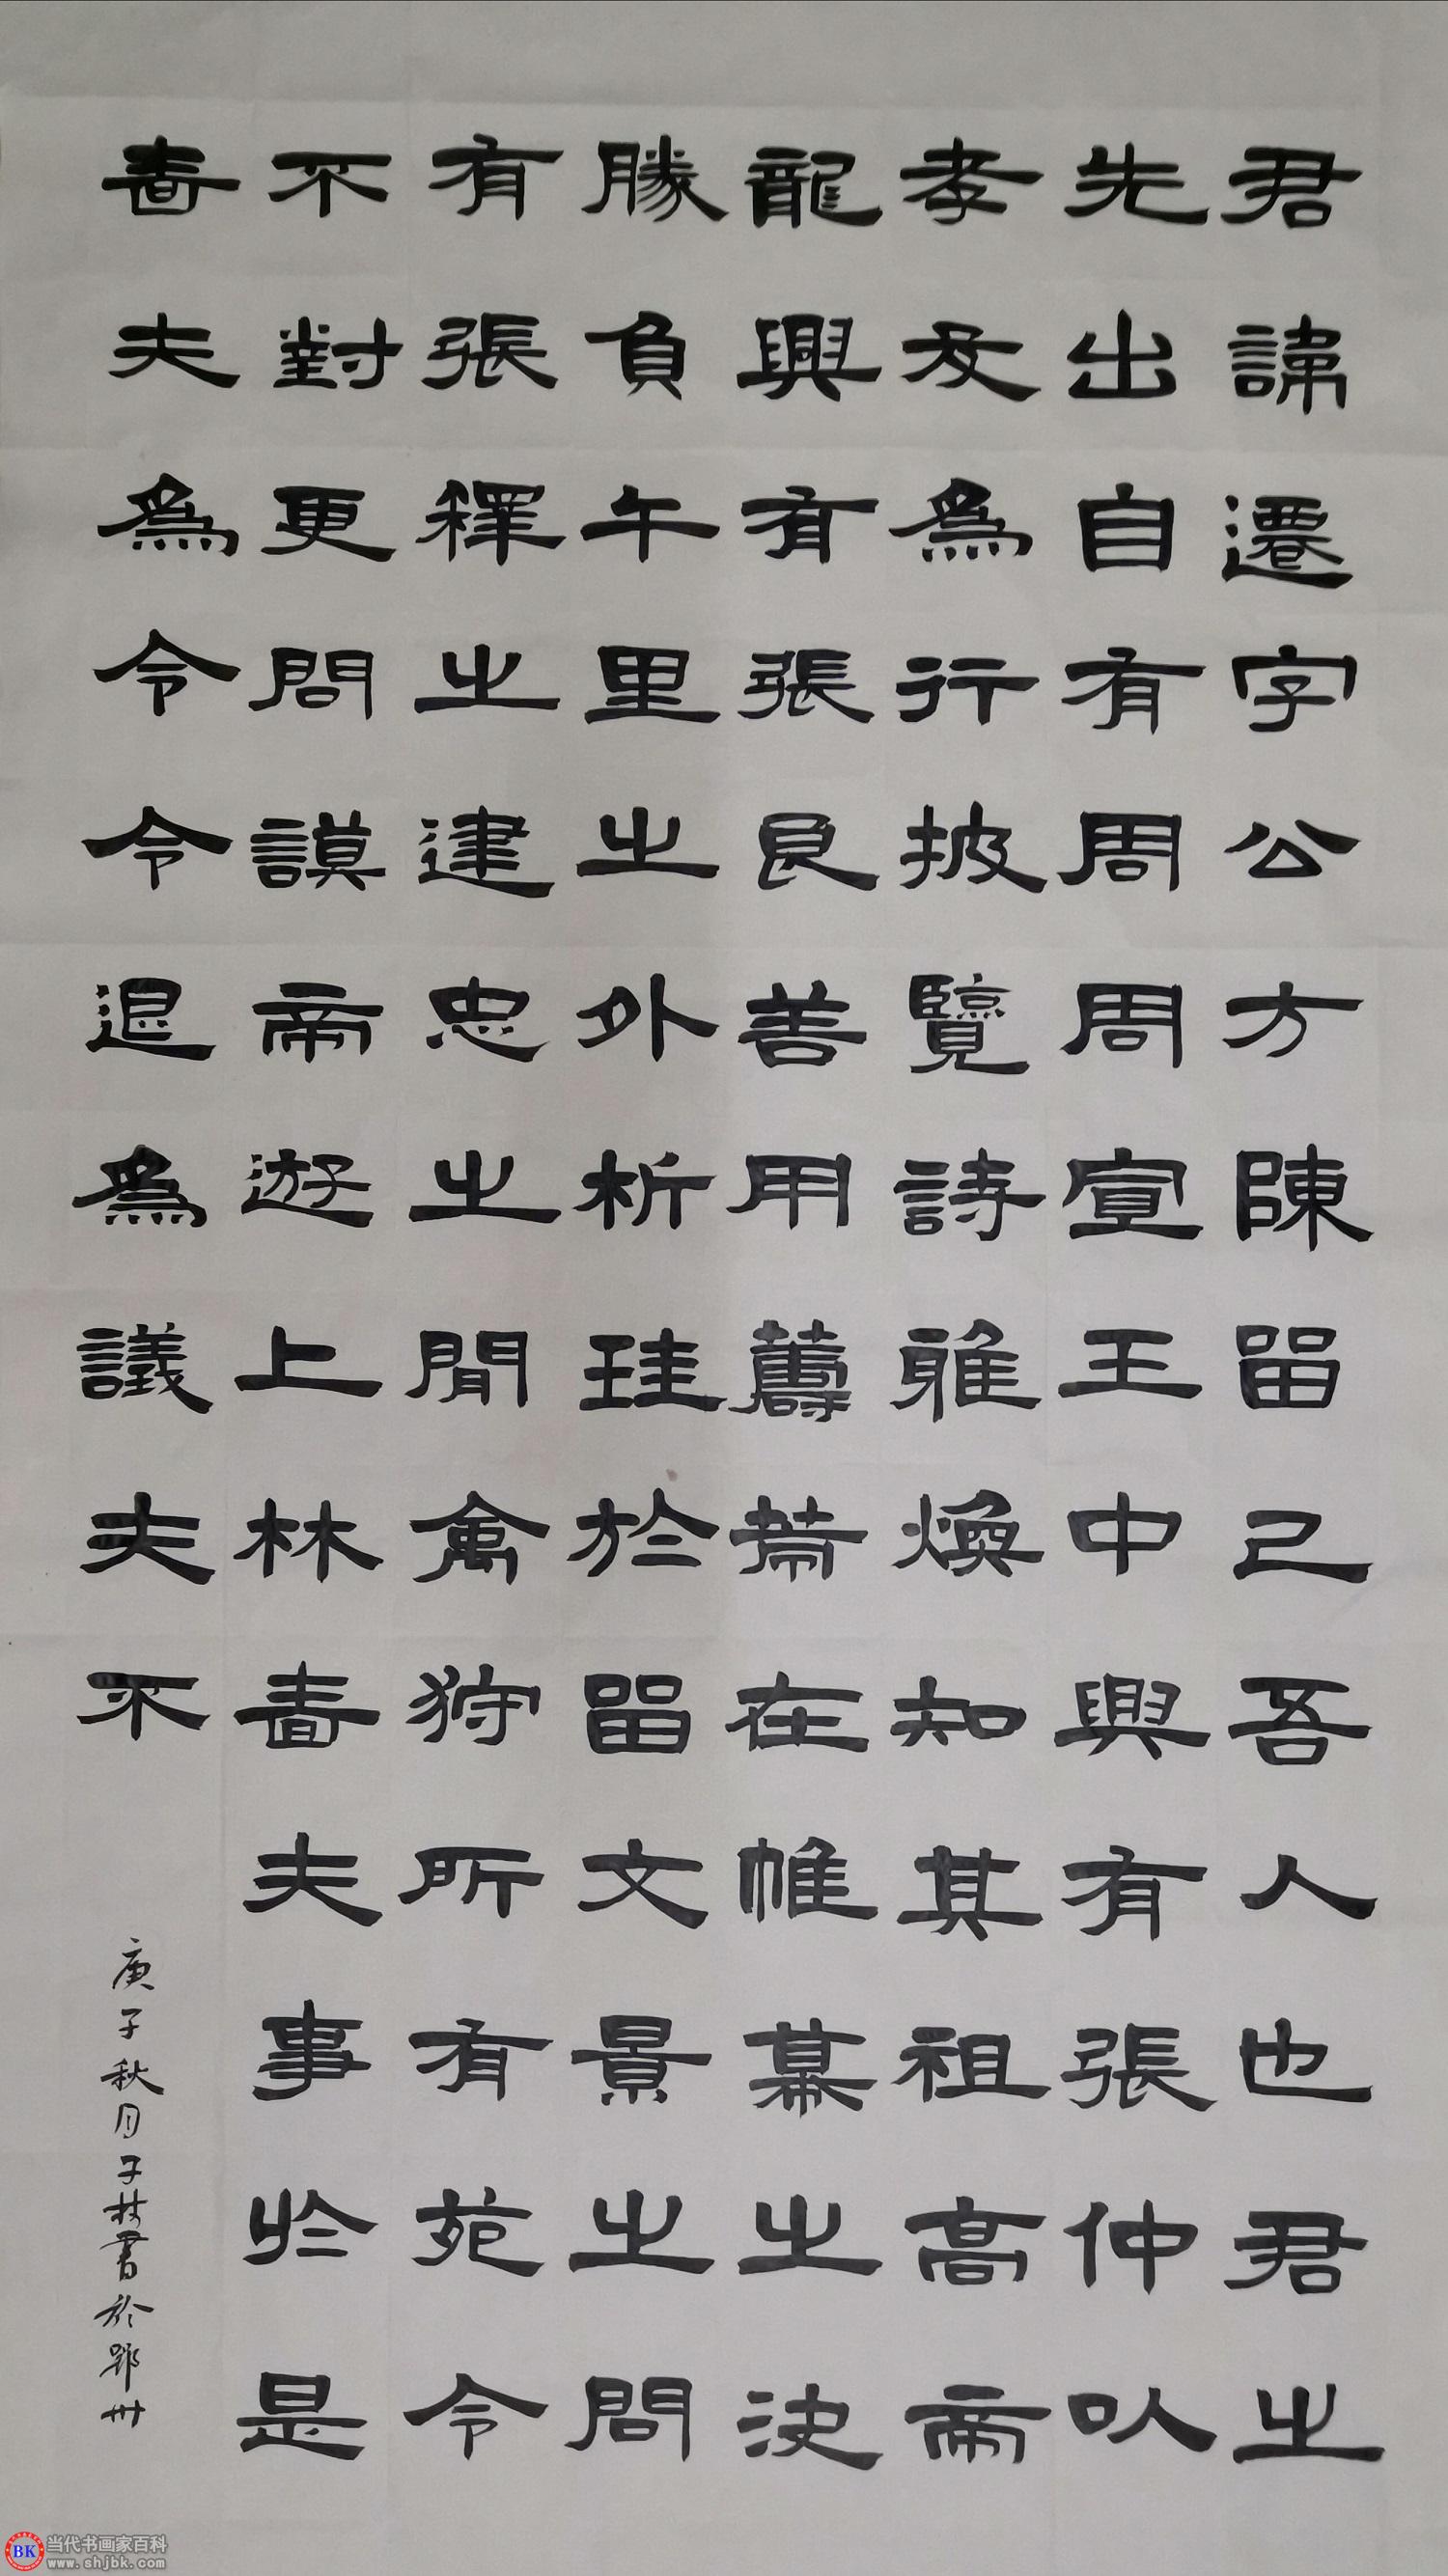 君諱遷字公方陳留己吾人也君之
先出自有周周宣王中興有張仲以
孝友為行披覽詩雅煥知其祖高帝
龍興有張良善用籌策在帷幕之決
勝負午里之外析珪於留文景之間
有張釋之建忠之閒禽狩所有苑令
不對更問謨帝遊上林嗇夫事於是
嗇夫為令令退為議夫不
庚子秋月子林書於鄂州
当代书画家百科
www.shjbk.com
BK